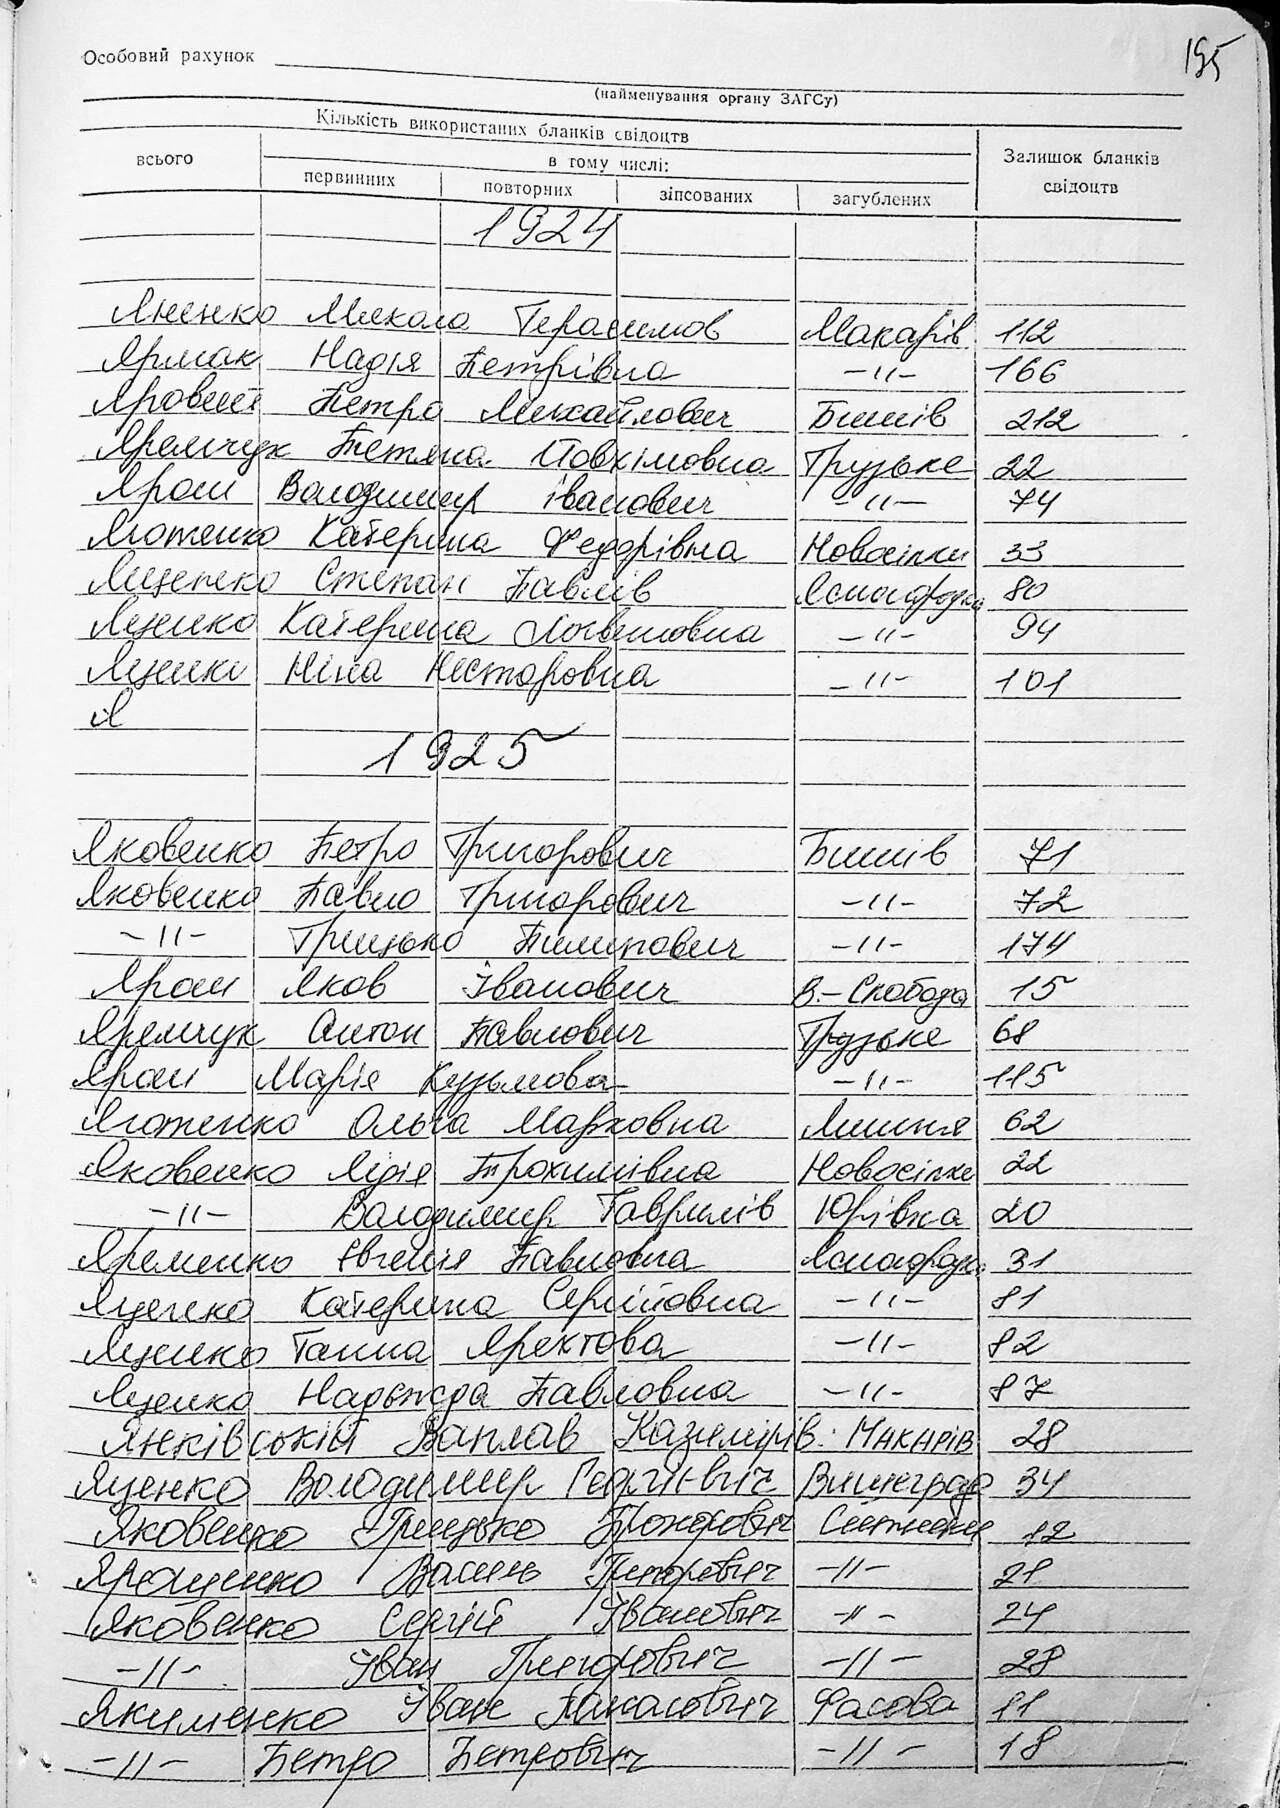 195
Особовий рахунок
(найменування органу ЗАГСу)
Кількість використаних бланків свідоцтв
всього
в тому числі:
Залишок бланків свідоцтв
первинних повторних зіпсованих загублених
1924
Яненко Микола Герасимов Макарів 112
Ярмак Надія Петрівна -11- 166
Яровий Петро Михайлович Бишів 212
Яремчук Тетяна Йовхімовна Грузьке 22
Ярош Володимир Іванович -11- 74
Яготенко Катерина Федорівна Новосілки 33
Яценко Степан Павлів Ясногородка 80
Яценко Катерина Логвиновна -11- 94
Яценко Ніна Несторовна -11- 101
Я
1925
Яковенко Петро Григорович Бишів 71
Яковенко Павло Григорович -11- 72
-11- Грицько Пилипович -11- 174
Ярош Яков Іванович В.-Слобода 15
Яремчук Антон Павлович Грузьке 68
Ярош Марія Кузьмова -11- 115
Яготенко Ольга Марковна Лишня 62
Яковенко Лідія Трохимівна Новосілки 22
-11- Володимир Гаврилів Юрівка 20
Яременко Євгенія Павловна Ясногородка 31
Яценко Катерина Сергійовна -11- 81
Яценко Ганна -11- 82
Яценко Павловна -11- 87
Янківський Вацлав Казимірів. Макарів 28
Яценко Володимир Георгієвич 34
Яковенко Грицько Прокопович Ситняки 12
Ярощенко Василь Григорович -11- 21
Яковенко Сергій Іванович -11- 24
-11- Іван Григорович -11- 28
Якименко Іван Панасович Фасова 11
-11- Петро Петрович -11- 18